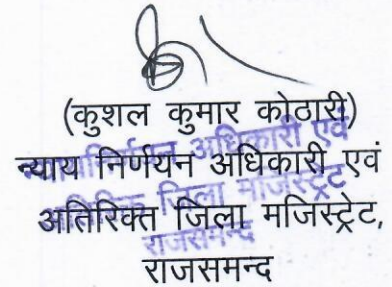 (कुशल कुमार कोठारी)
न्याय निर्णयन अधिकारी एवं
अतिरिक्त जिला मजिस्ट्रेट,
राजसमन्द
न्याय निर्णयन अधिकारी एवं
अतिरिक्त जिला मजिस्ट्रेट
राजसमन्द